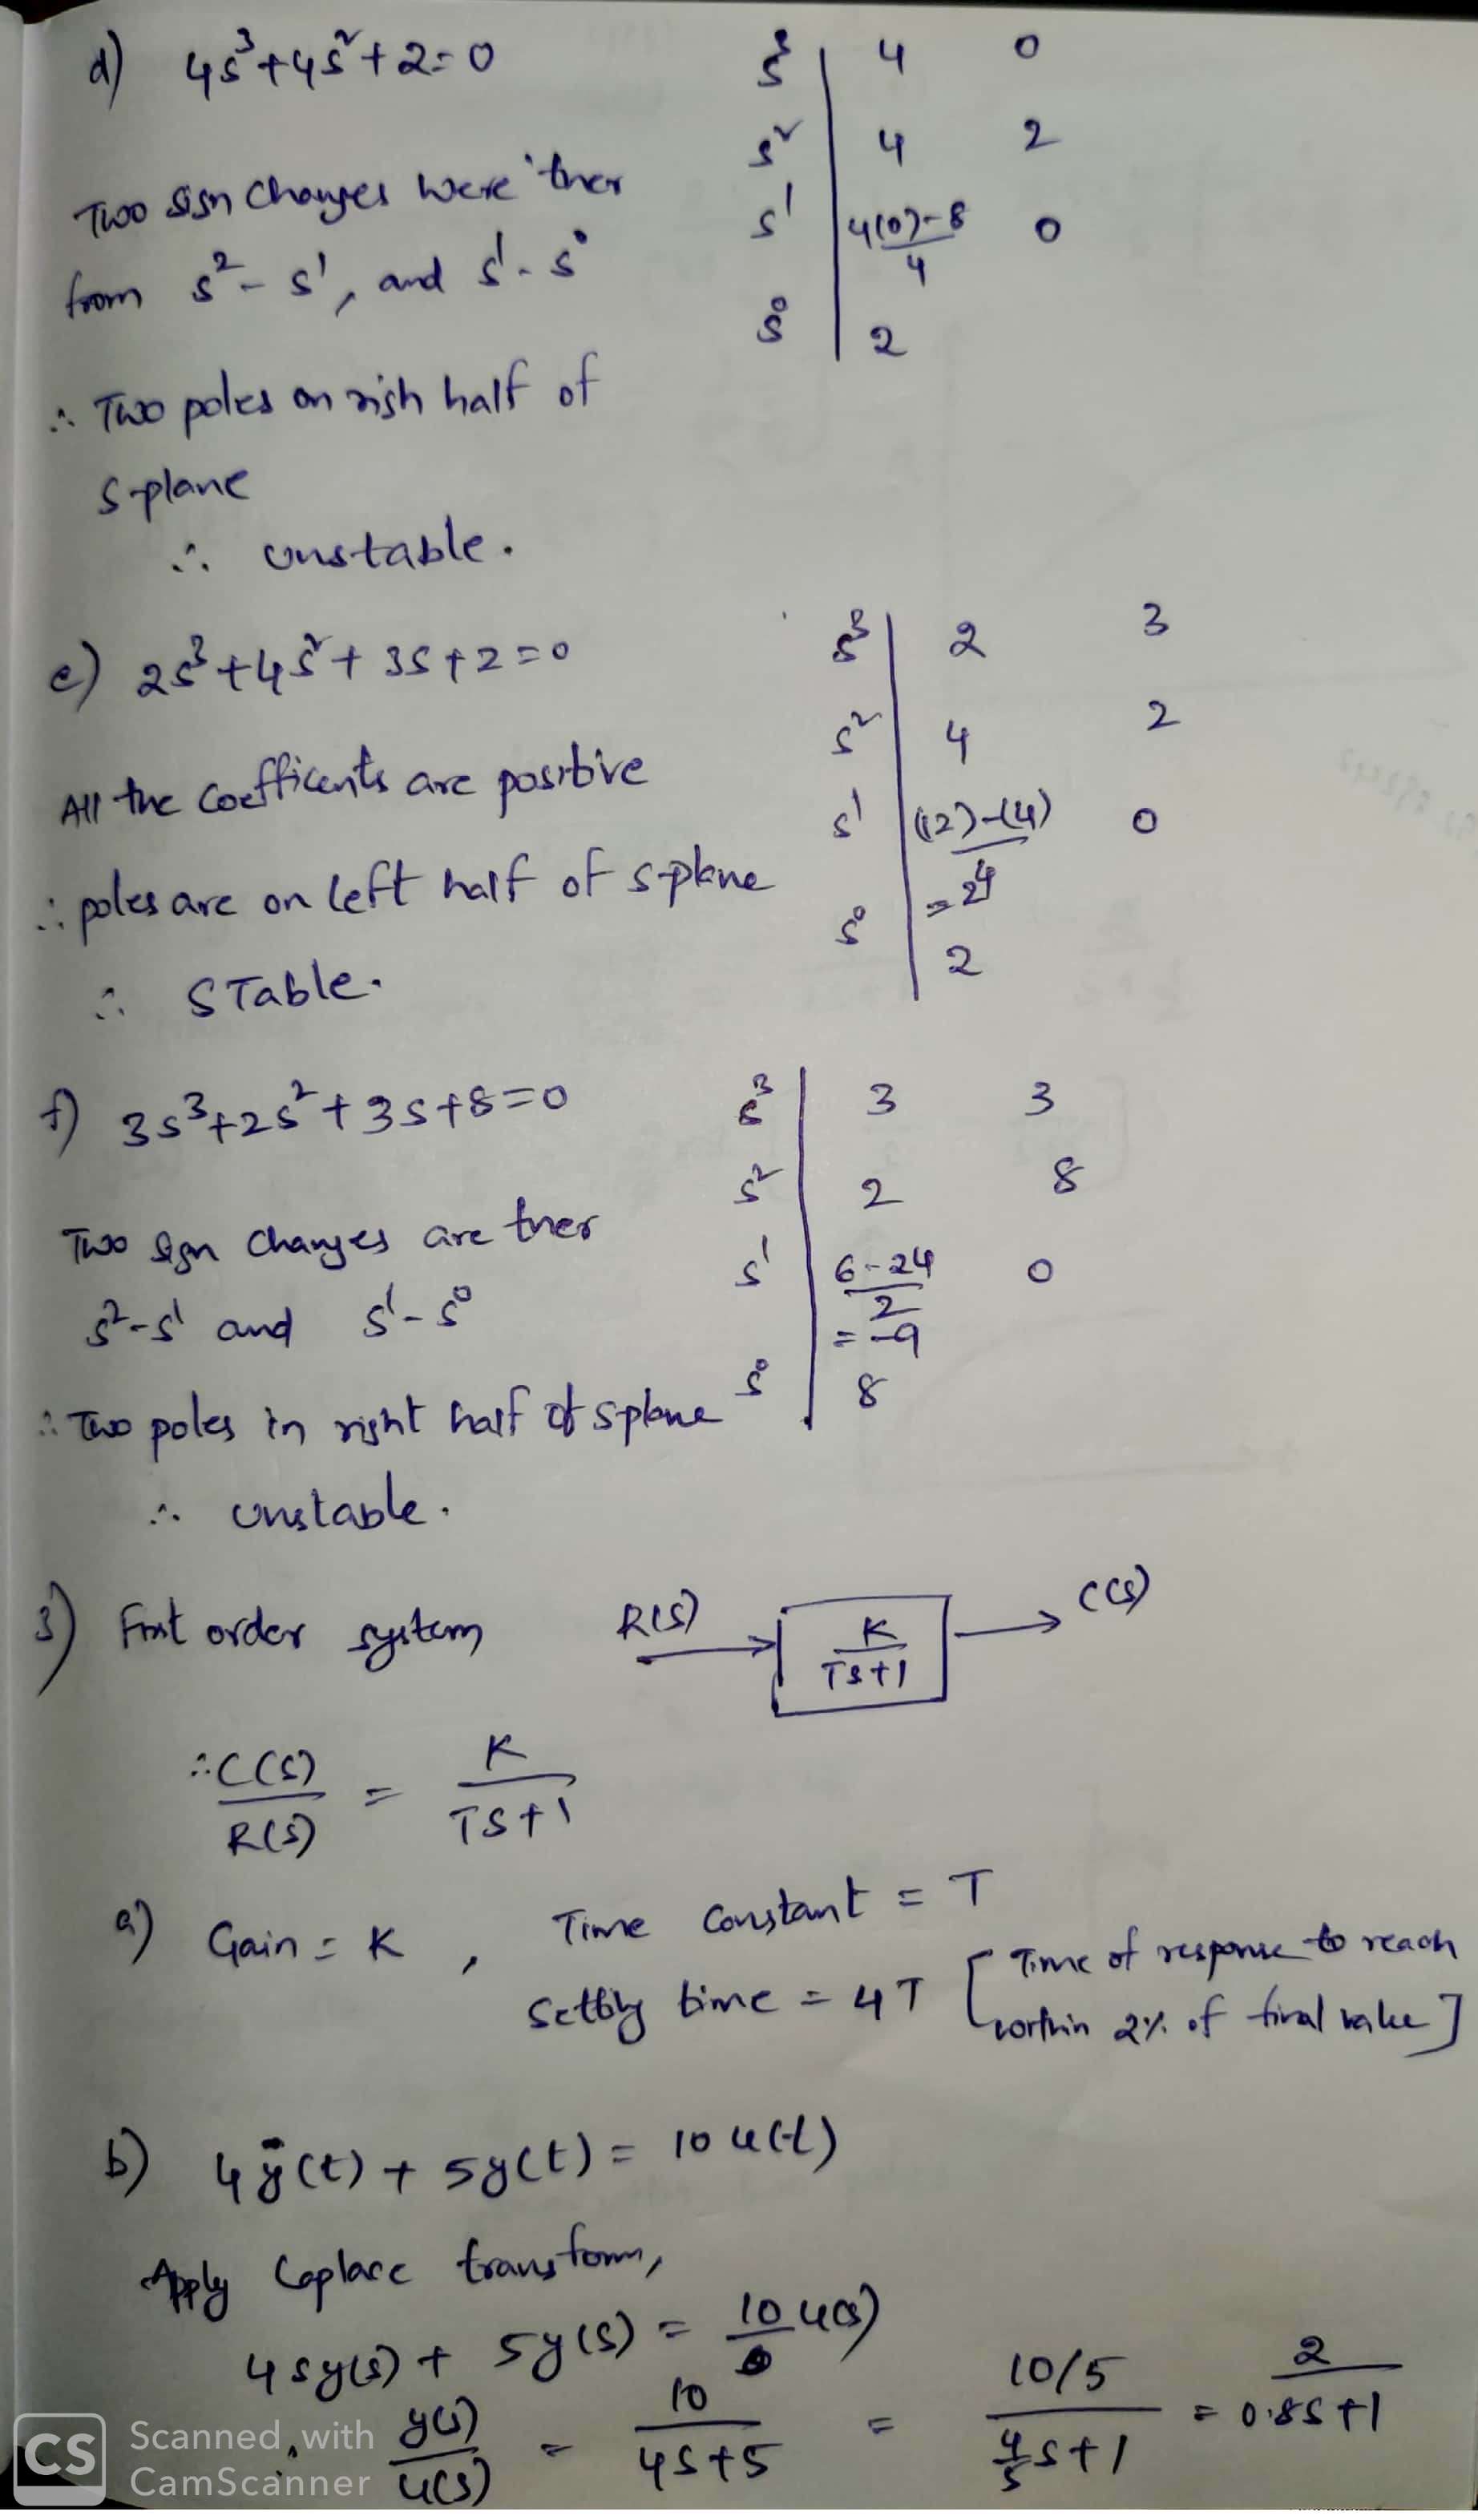 d) 4s³+4s²+2=0
s³ 4 0
s² 4 2
s¹ 4(0)-8/4 0
s⁰ 2
Two sign changes were ther
from s²-s¹, and s¹-s⁰
∴ Two poles on righ half of
s-plane
∴ unstable.
e) 2s³+4s²+3s+2=0
s³ 2 3
s² 4 2
s¹ (12)-(4)/4 0
= 2
s⁰ 2
All the coefficents are positive
∴ poles are on left half of s-plane
∴ STable.
f) 3s³+2s²+3s+8=0
s³ 3 3
s² 2 8
s¹ 6-24/2 0
= -9
s⁰ 8
Two sign changes are ther
s²-s¹ and s¹-s⁰
∴ Two poles in right half of s-plane
∴ unstable.
3) First order system R(s) K/Ts+1 C(s)
∴ C(s)/R(s) = K/TS+1
a) Gain = K , Time Constant = T
Settling time = 4T [Time of response to reach
within 2% of final value]
b) 4ẏ(t) + 5y(t) = 10 u(t)
Apply Laplace transform,
4sy(s) + 5y(s) = 10 u(s)
∴ y(s)/u(s) = 10/4s+5 = 10/5/4/5s+1 = 2/0.8s+1
CS Scanned with
CamScanner